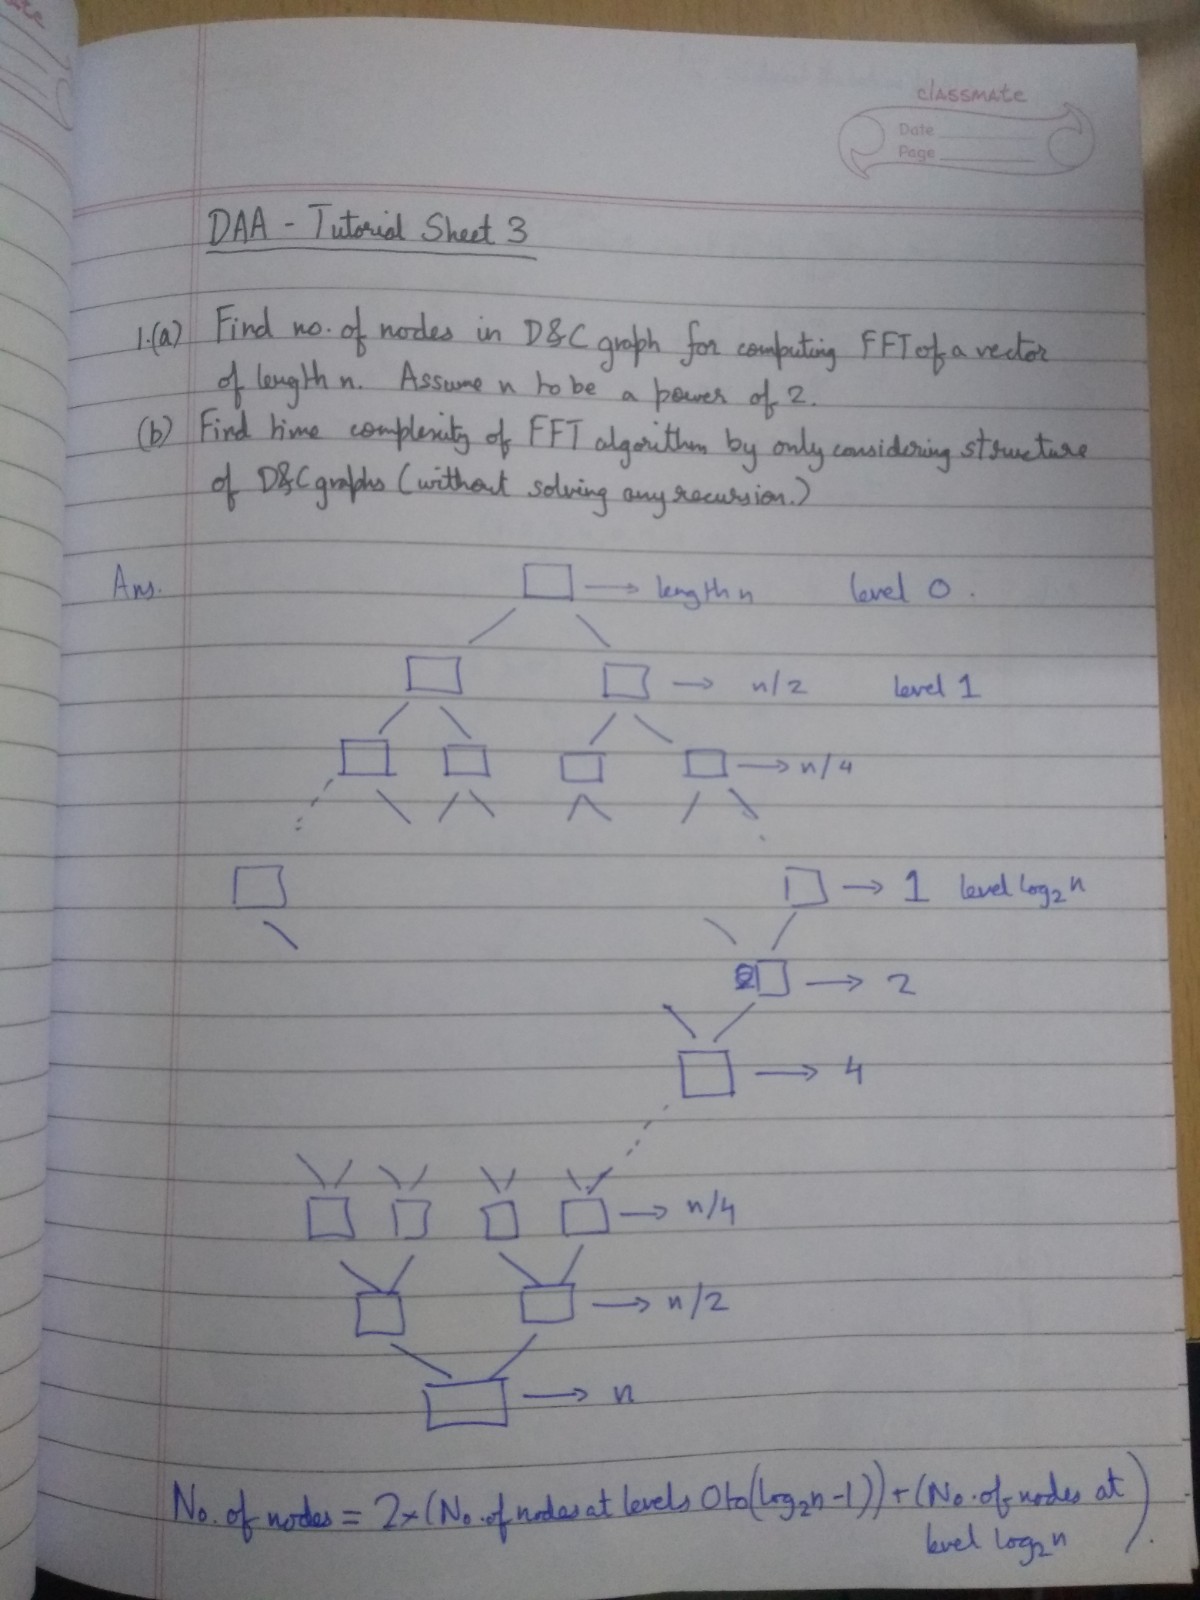 classmate
Date
Page
DAA - Tutorial Sheet 3
1.(a) Find no. of nodes in D&C graph for computing FFT of a vector
of length n. Assume n to be a power of 2.
(b) Find time complexity of FFT algorithm by only considering structure
of D&C graphs (without solving any recursion.)
Ans. → length n level 0.
→ n/2 level 1
→ n/4
→ 1 level log₂n
→ 2
→ 4
→ n/4
→ n/2
→ n
No. of nodes = 2×(No. of nodes at levels 0 to (log₂n-1)) + (No. of nodes at
level log₂n).